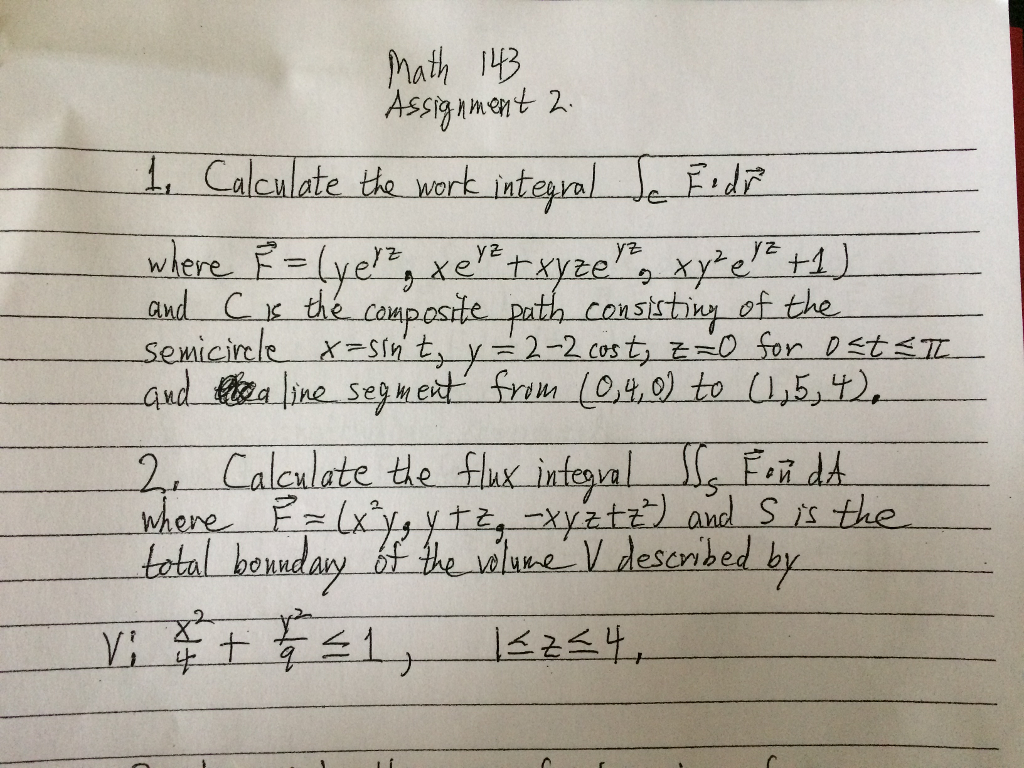 Math 143
Assignment 2.
1. Calculate the work integral ∫_C F⃗·dr⃗
where F⃗ = (ye^{yz}, xe^{yz}+xyze^{yz}, xy²e^{yz}+1)
and C is the composite path consisting of the
semicircle x=sin t, y=2-2cos t, z=0 for 0≤t≤π
and a line segment from (0,4,0) to (1,5,4).
2. Calculate the flux integral ∬_S F⃗·n⃗ dA
where F⃗ = (x²y, y+z, -xyz+z²) and S is the
total boundary of the volume V described by
V: x²/4 + y²/9 ≤ 1, 1≤z≤4,